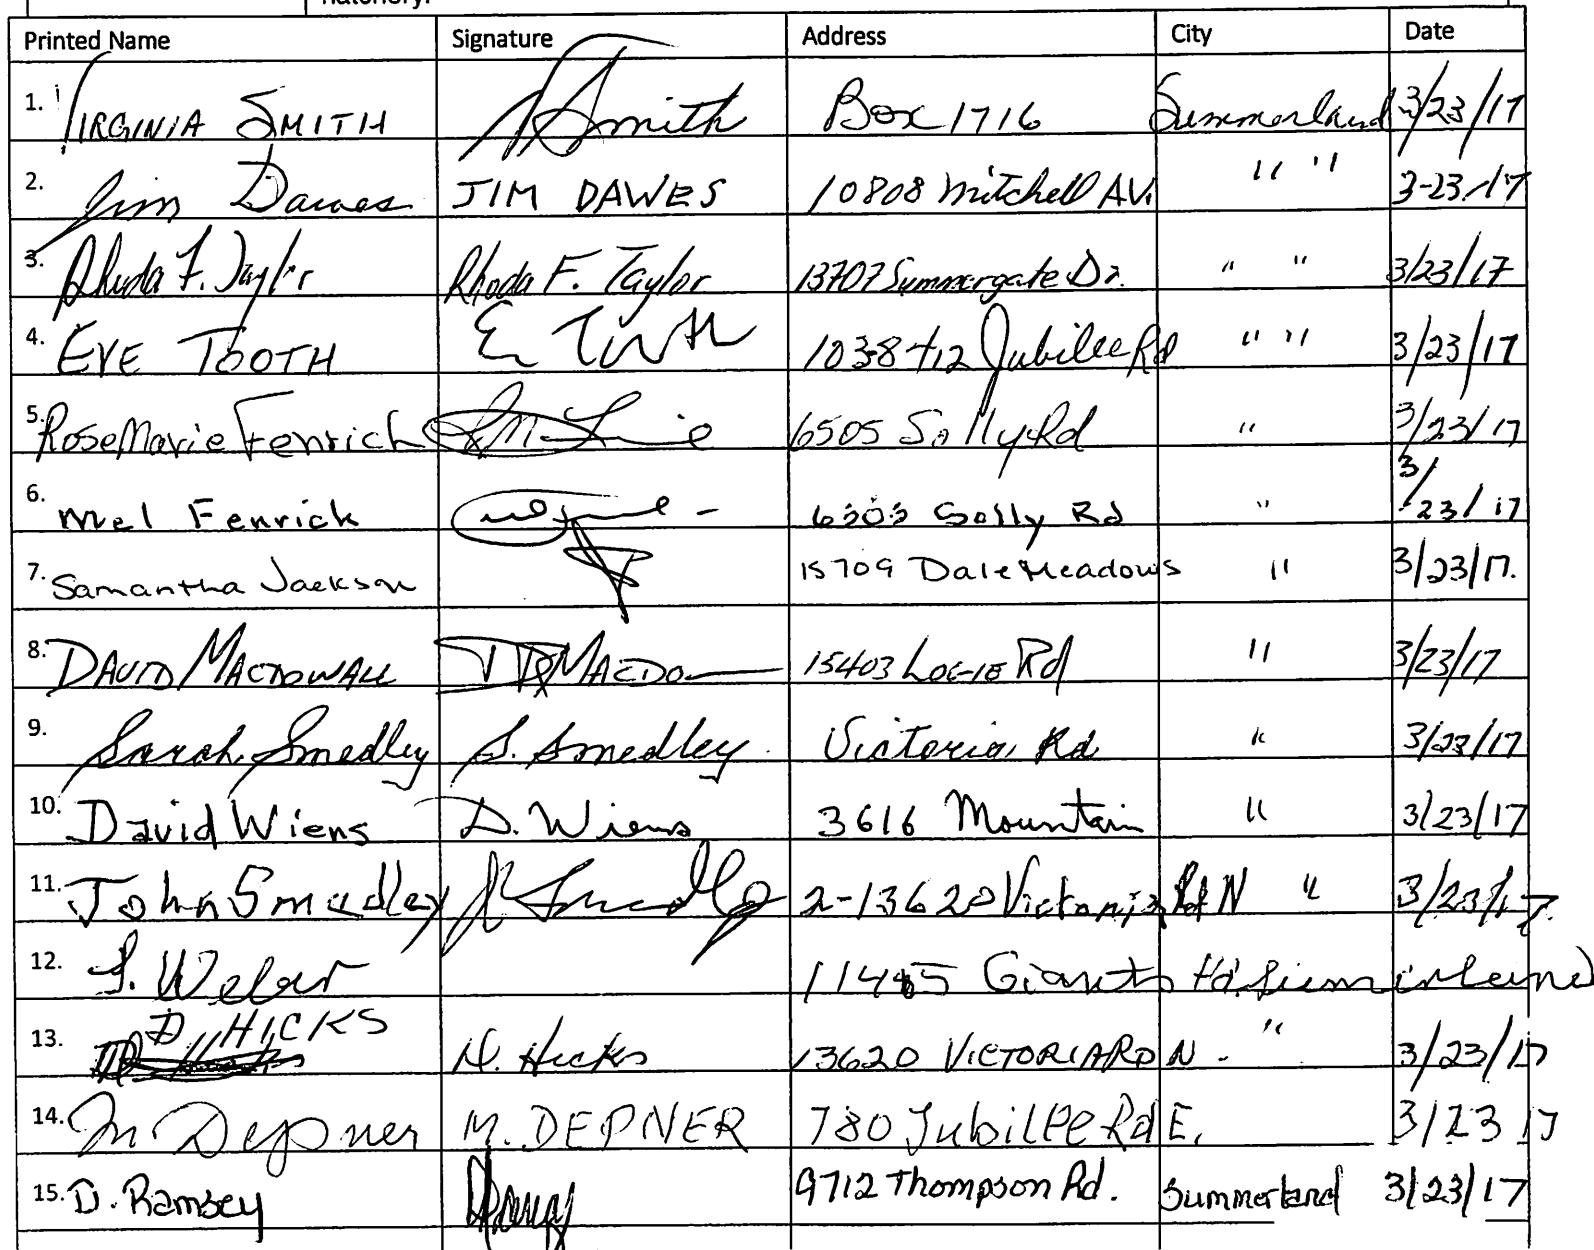 hatchery.
Printed Name Signature Address City Date
1. VIRGINIA SMITH VSmith Box 1716 Summerland 3/23/17
2. Jim Dawes JIM DAWES 10808 Mitchell AV. " " 3-23-17
3. Rhoda F. Taylor Rhoda F. Taylor 13707 Summergate Dr. " " 3/23/17
4. EVE TOOTH Jubilee Rd " " 3/23/17
5. RoseMarie Fenrich 6505 Solly Rd " 3/23/17
6. Mel Fenrick 6303 Solly Rd " 3/23/17
7. Samantha Jackson 15709 Dale Meadows " 3/23/17.
8. DAVID MACDOWALL 15403 LOGIE Rd " 3/23/17
9. Sarah Smedley S. Smedley Victoria Rd " 3/23/17
10. David Wiens D. Wiens 3616 Mountain " 3/23/17
11. John Smedley J Smedley 2-13620 Victoria Rd N " 3/23/17
12. Weber Giants Hd. Summerland
13. D. HICKS D. Hicks 13620 VICTORIA RD N - " 3/23/17
14. M Depner M. DEPNER 780 Jubilee Rd E. 3/23 17
15. D. Ramsey 9712 Thompson Rd. Summerland 3/23/17